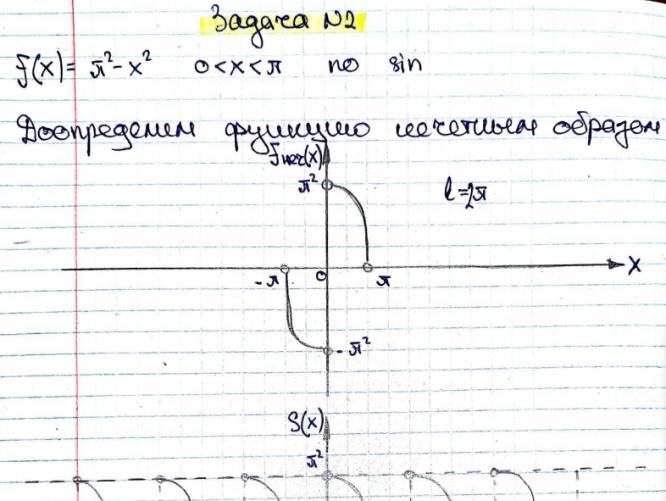 Задача N2
f(x)= π²-x² 0<x<π по sin
Доопределим функцию нечетным образом
Fнеч(x)
π²
l=2π
-π 0 π x
-π²
S(x)
π²